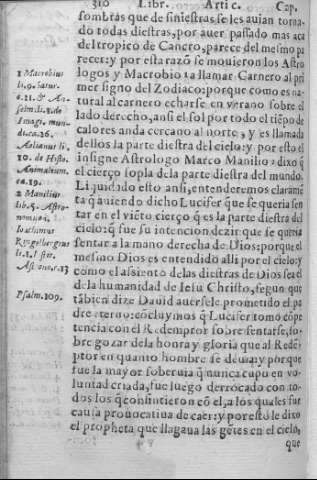 310 Libr. Artic. Cap.
sombras que de siniestras se les auian torna-
do todas diestras, por auer passado mas aca
del tropico de Cancro, parece del mesmo pa
recer: y por esta razõ se mouieron los Astro
1 Macrobius logos y Macrobio 1 a llamar Carnero al pri
li. 9. satur. mer signo del Zodiaco: porque como es na-
c. 21. & An- tural al carnero echarse en verano sobre el
selm. li. 1. de lado derecho, ansi el sol por todo el tiẽpo de
Imagi. mun- calores anda cercano al norte, y es llamada
di. ca. 26. dellos la parte diestra del cielo: y por esto el
Aelianus li. insigne Astrologo Marco Manilio 2 dixo q̃
10. de Histo. el cierço sopla de la parte diestra del mundo.
Animalium.
ca. 19. Liquidado esto ansi, entenderemos claramẽ
2 Manilius te q̃ auiendo dicho Lucifer que se queria sen
lib. 5. Astro- tar en el viẽto cierço q̃ es la parte diestra del
nomicõ. cielo: q̃ fue su intencion dezir que se queria
Ioachimus sentar a la mano derecha de Dios: porque el
Ryngelbergius mesmo Dios es entendido alli por el cielo: y
li. 1. Insti.
Astrono. c. 13 como el assiento de las diestras de Dios sea el
de la humanidad de Iesu Christo, segun que
Psalm. 109. tãbien dize Dauid auersele prometido el pa
dre eterno: cõcluymos q̃ Lucifer tomo cõpe
tencia con el Redemptor sobre sentarse, so-
bre gozar de la honra y gloria que al Redẽ-
ptor en quanto hombre se deuia: y porque
fue la mayor soberuia q̃ nunca cupo en vo-
luntad criada, fue luego derrocado con to-
dos los q̃ consintieron cõ el, a los quales fue
causa prouocatiua de caer: y por esto le dixo
el propheta que llagaua las gẽtes en el cielo,
que